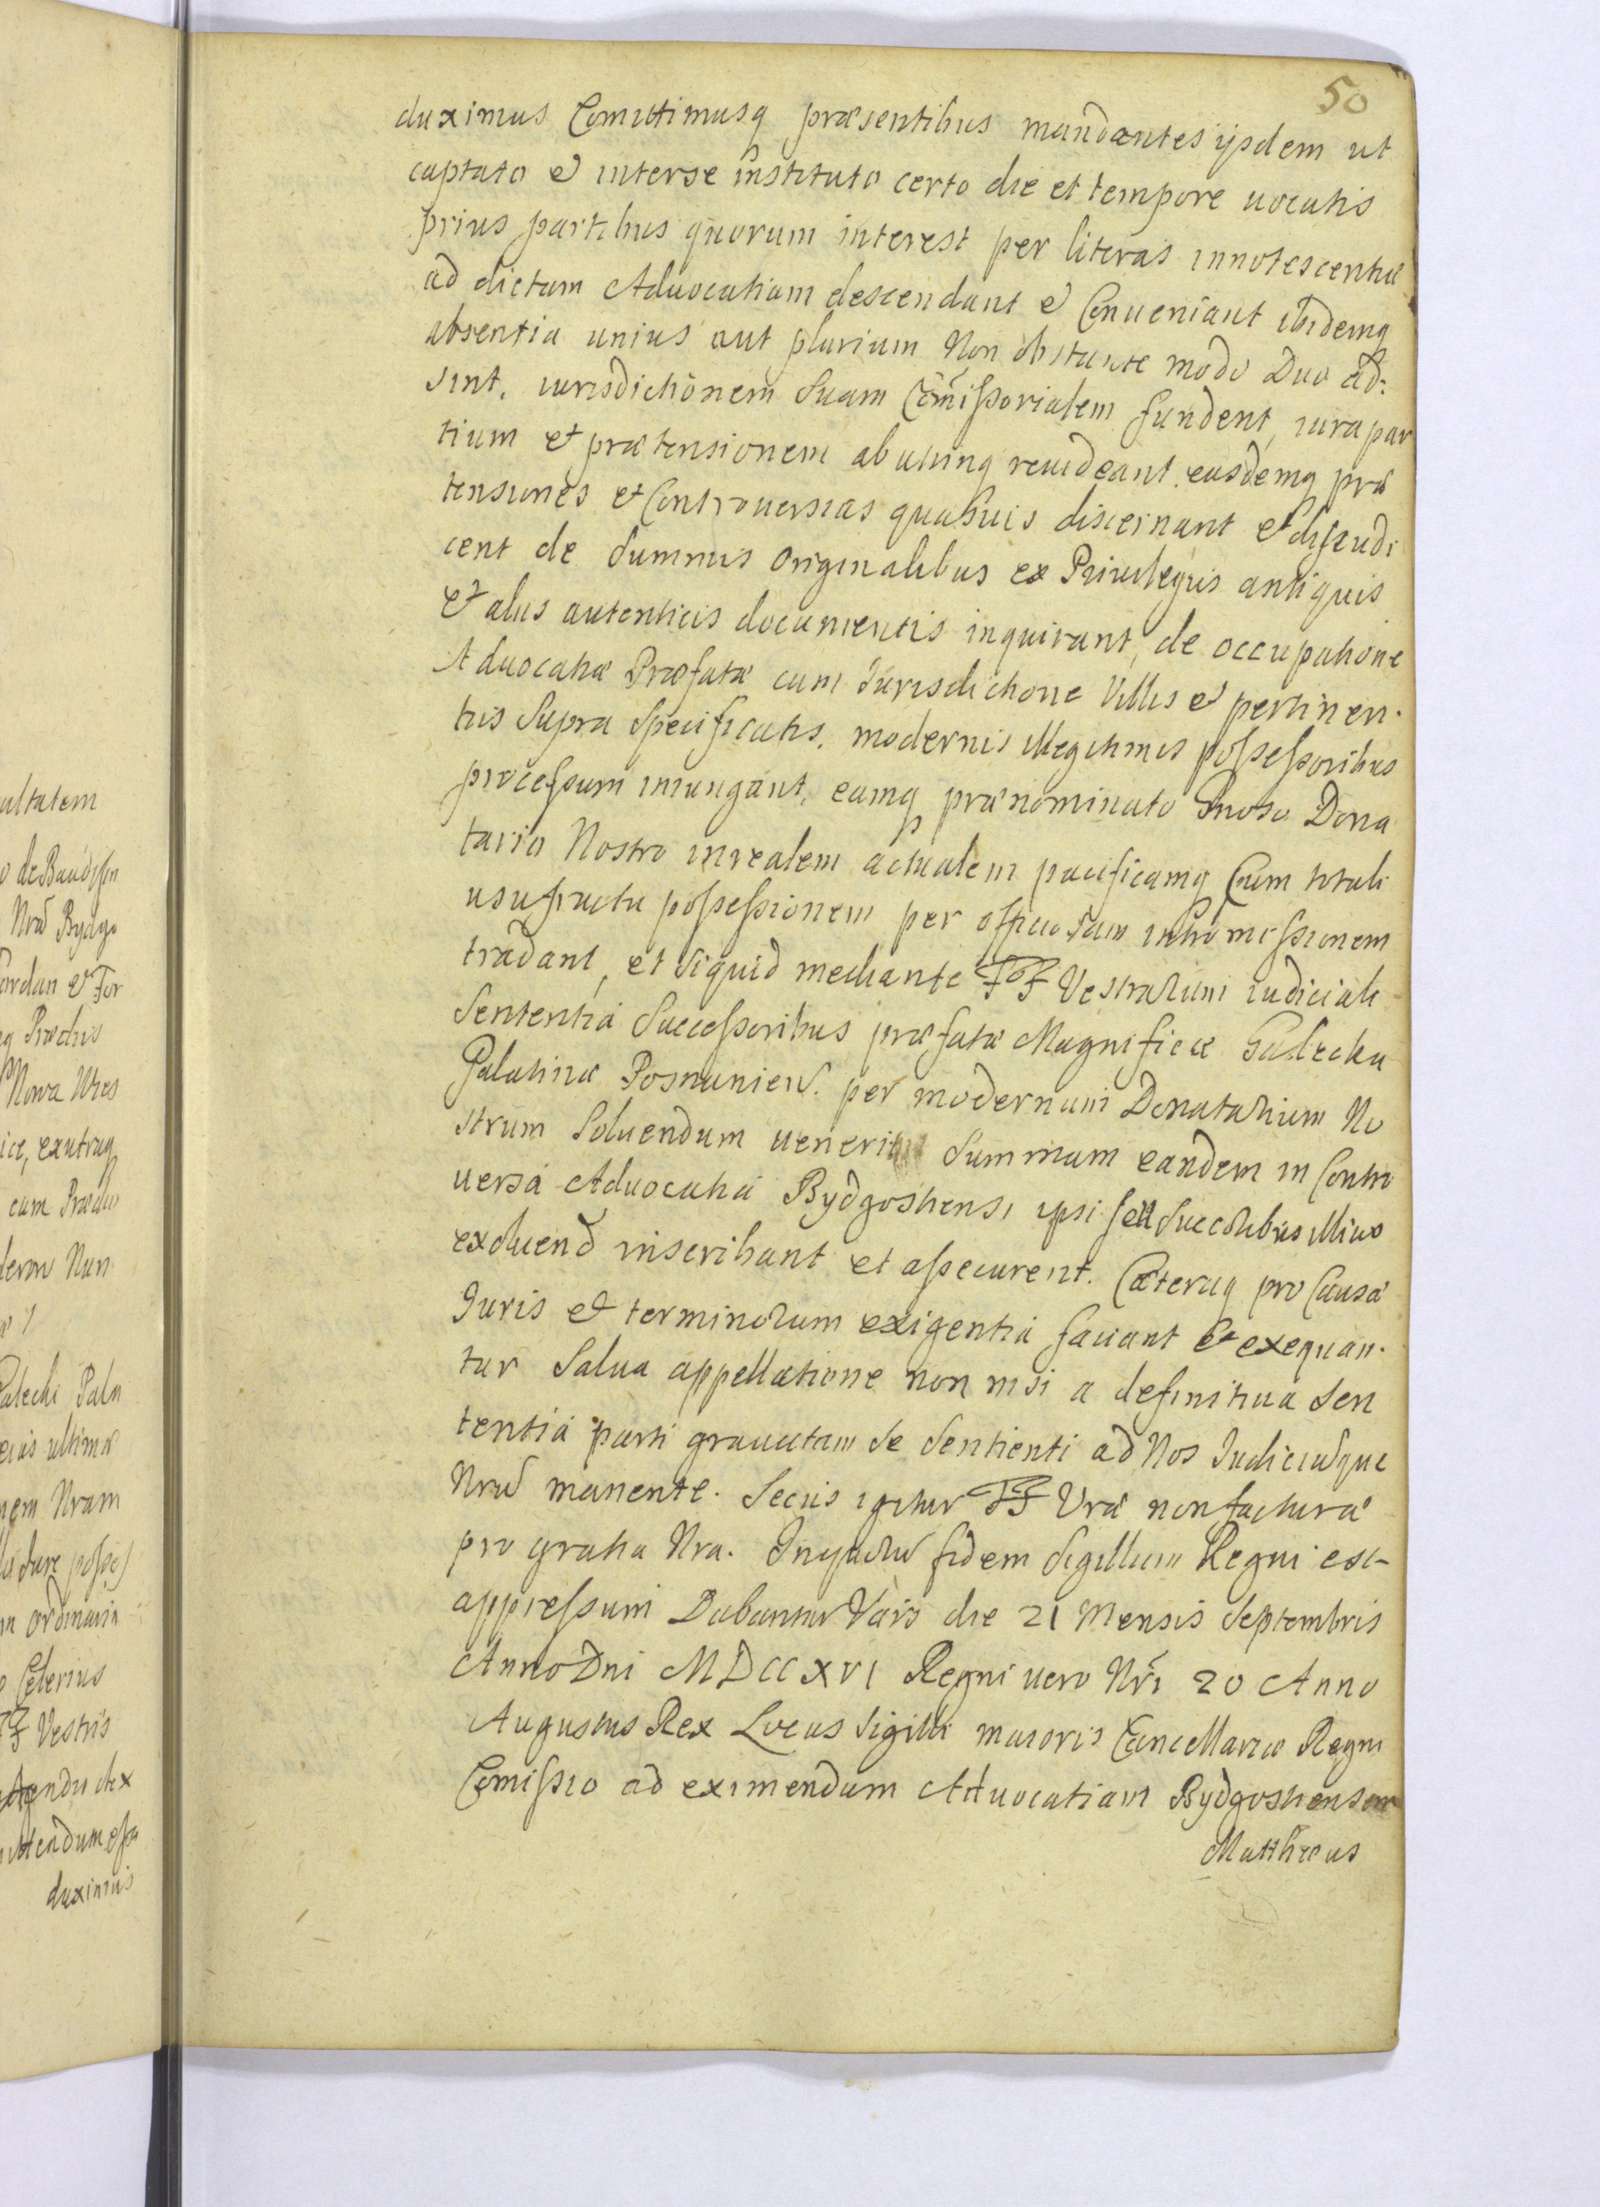 50
duximus Comittimusq præsentibus mandantes ijsdem ut
captato et interse instituto certo die et tempore uocatis
prius partibus quorum interest per literas innotescentiæ
ad dictam Aduocatiam descendant et Conueniant ibidemq
absentia unius aut plurium Non obstante modo Duo ad:
sint, iurisdictionem Suam Comissorialem fundent, iura par
tium et prætensionem abutrinq reuideant easdemq præ
tensiones et Controuersias quasuis discernant et dijudi
cent de Summis Originalibus ex Priuilegijs antiquis
et alijs autenticis documentis inquirant, de occupatione
Aduocatiæ Præfatæ cum Jurisdictione Villis et pertinen.
tijs Supra Specificatis, modernis illegitimis possessoribus
processum iniungant, eamq prænominato Gnoso Dona
tario Nostro inrealem actualem pacificamq Cum totali
usufructu possessionem per officiosam intromissionem
tradant, et Siquid mediante FF Vestrarum iudiciali
Sententia Successoribus præfatæ Magnificæ Galecka
Palatinæ Posnanien. per modernum Donatarium No
strum Soluendum uenerit Summam eandem in Contro
uersa Aduocatia Bydgostiensi ipsi seu Succoribus illius
exoluend inscribant et assecurent. Cæteraq pro Causa
Juris et terminorum exigentia faciant et exequan.
tur Salua appellatione non nisi a definitiua Sen
tentia parti grauatam Se Sentienti ad Nos Judiciuque
Nrum manente. Secus igitur FF Vræ non facturæ
pro gratia Nra. Inquoru fidem Sigillum Regni est
appressum Dabantur Vars die 21 Mensis Septembris
Anno Dni MDCCXVI Regni uero Nri 20 Anno
Augustus Rex Locus Sigilli maioris Cancellariæ Regni
Comissio ad eximendum Aduocatiam Bydgostiensem
Matthæus
ultatem
Nru Bydgo
Nowa Wies
cum Prædio
ultimæ
nem Nram
ordinaria
Celerius
Vestris
duximus